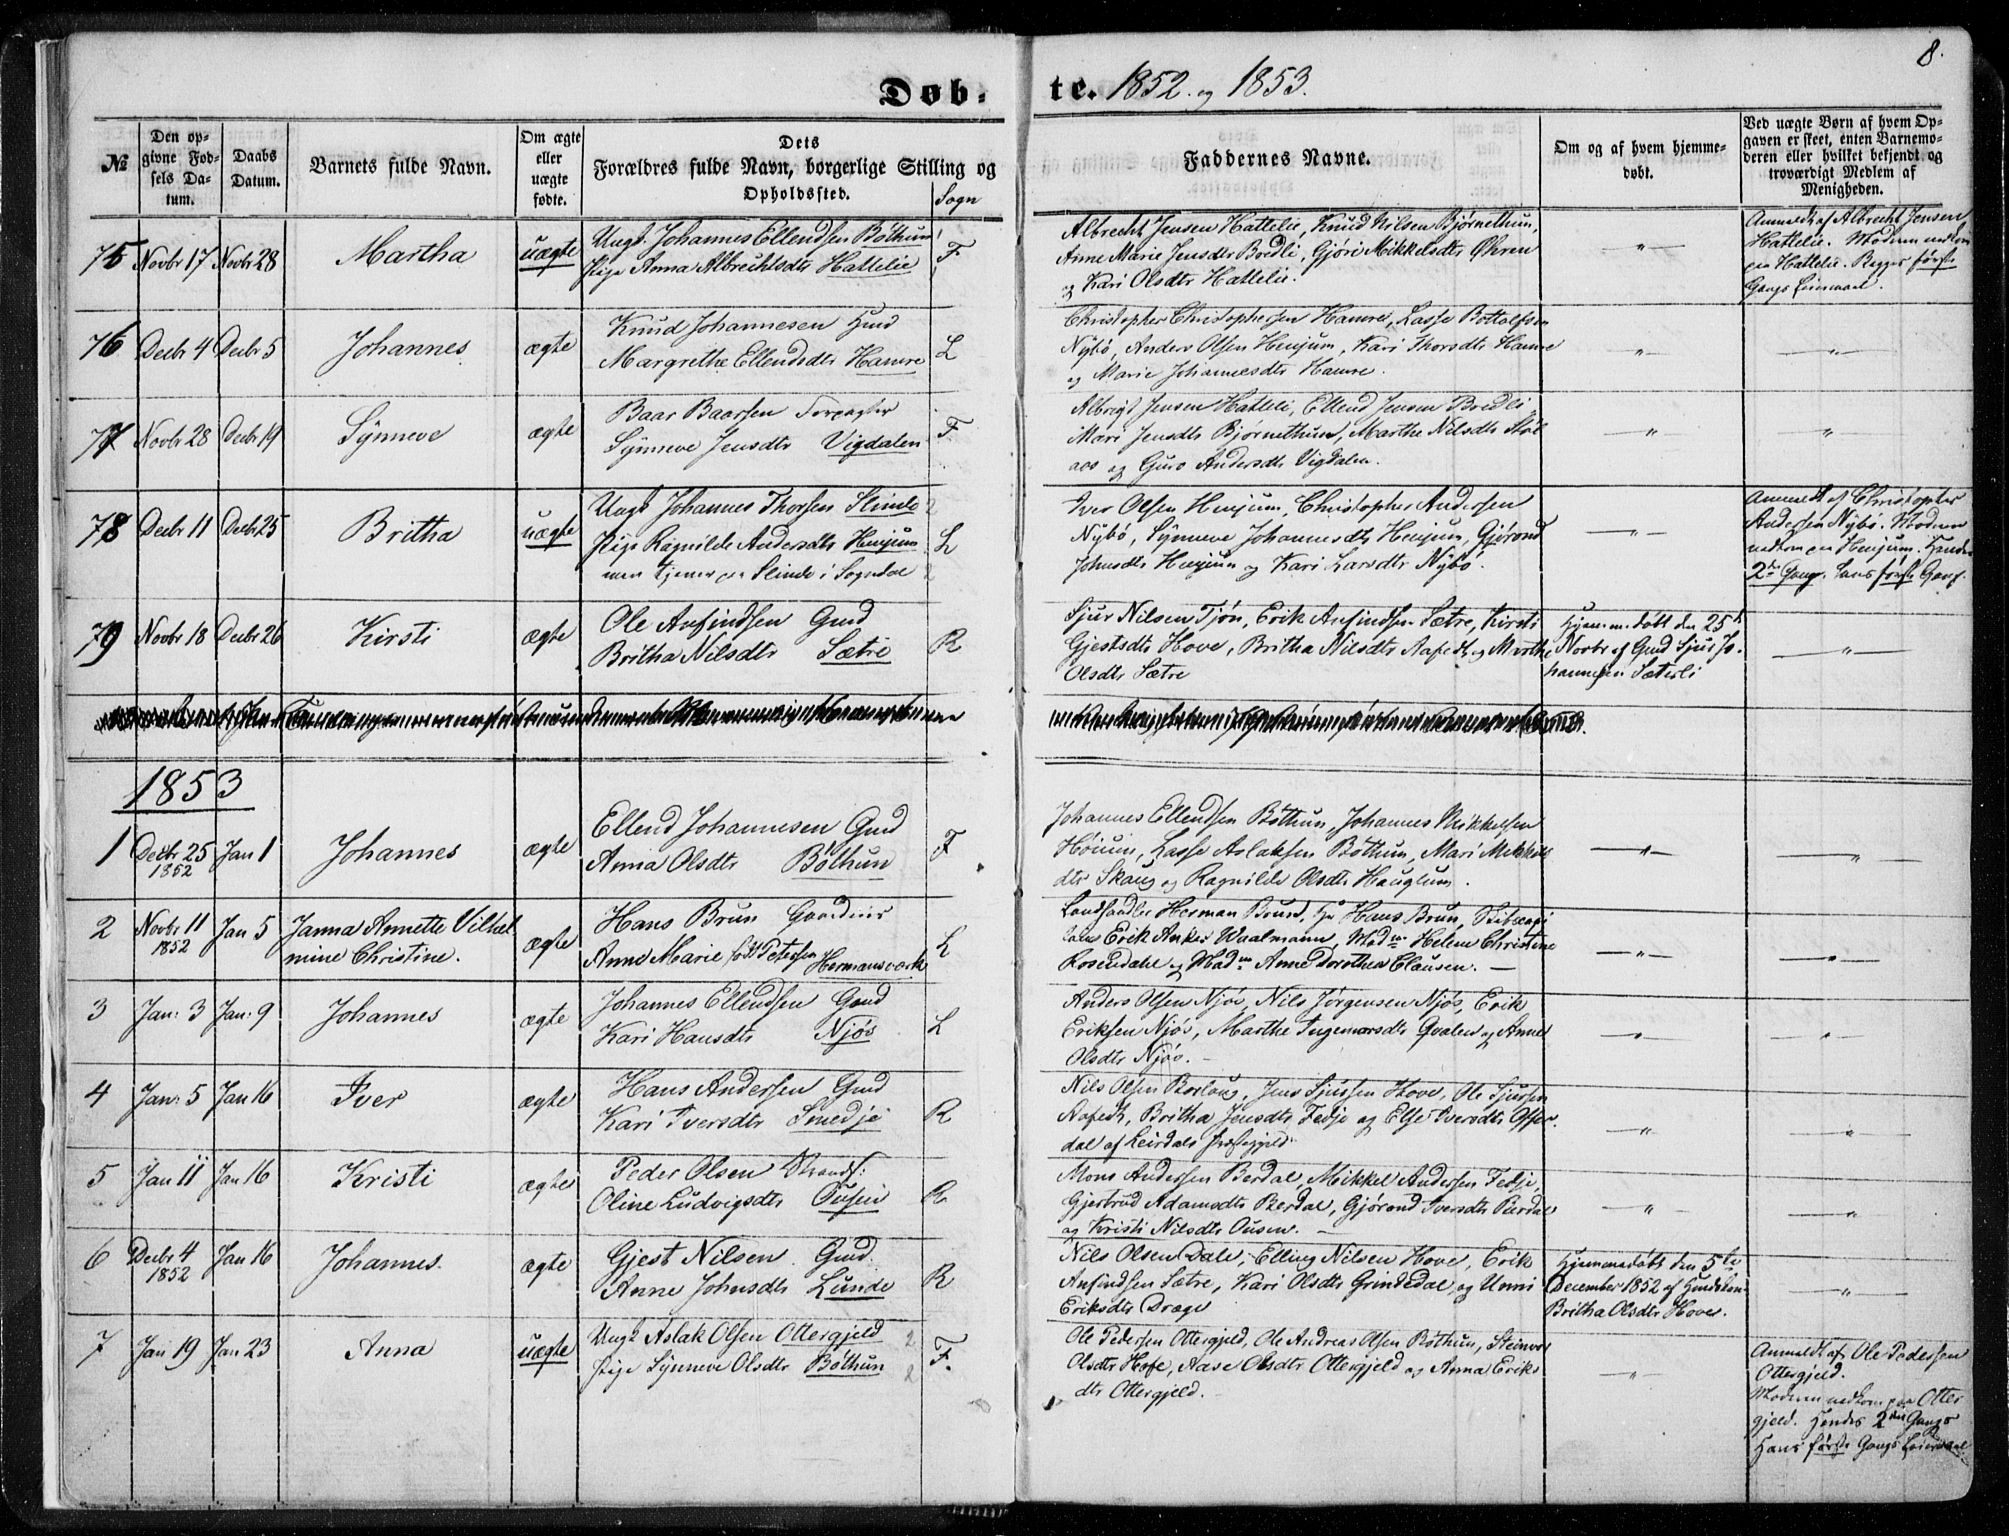 8.
Døb-te. 1852. og 1853.
№
Den opgivne Fødsels Datum.
Daabs Datum.
Barnets fulde Navn.
Om ægte eller uægte fødte.
Dets Forældres fulde Navn, borgerlige Stilling og Opholdssted.
Sogn
Faddernes Navne.
Om og af hvem hjemmedøbt.
Ved uægte Børn af hvem Opgaven er skeet, enten Barnemoderen eller hvilket bekjendt og troværdigt Medlem af Menigheden.
75 Novbr 17 Novbr 28 Martha uægte
Ungk. Johannes Ellendsen Bøthun
Pige Anna Albrechtsdtr Hattelie F
Albrecht Jensen Hattelie, Knud Nilsen Bjørnethun,
Anne Marie Jensdtr Bredli, Gjøri Mikkelsdtr Øhren
og Kari Olsdtr Hattelie.
—"—
Anmeldt af Albrecht Jensen
Hattelie. Moderen nedkom
paa Hattelie. Begges første
Gangs Leiermaal.
76 Decbr 4 Decbr 5 Johannes ægte
Knud Johannesen Hmd
Margrethe Ellendsdtr Hamre L
Christopher Christophersen Hamre, Lasse Bottolfsen
Nybø, Anders Olsen Henjum, Kari Thorsdtr Hamre
og Marie Johannesdtr Hamre.
—"—
—"—
77 Novbr 28 Decbr 19 Synneve ægte
Baar Baarsen Forpagter
Synneve Jensdtr Vigdalen F
Albregt Jensen Hatteli, Ellend Jensen Bredli,
Mari Jensdtr Bjørnethun, Marthe Nilsdtr
og Guro Andersdtr Vigdalen.
—"—
"
78 Decbr 11 Decbr 25 Britha uægte
Ungk Johannes Thorsen Slinde 2
Pige Ragnilde Andersdtr Henjum L
men tjener paa Slinde i Sogndal 2
Iver Olsen Henjum, Christopher Andersen
Nybø, Synneve Johannesdtr Henjum, Gjørond
Johnsdtr Henjum og Kari Larsdtr Nybø.
—"—
Anmeldt af Christopher
Andersen Nybø. Moderen
nedkom paa Henjum. Hendes
2den Gang. Hans første Gang.
79 Novbr 18 Decbr 26 Kirsti ægte
Ole Anfindsen Gmd
Britha Nilsdtr Sætre R
Sjur Nilsen Tjøn, Erik Anfindsen Sætre, Kirsti
Gjestsdtr Hove, Britha Nilsdtr Aafedt og Marthe
Olsdtr Sætre
Hjemmedøbt den 25de
Novbr af Gmd Sjur Jo-
hannesen Sæterli
—"—
1853
1 Decbr 25 1852 Jan 1 Johannes ægte
Ellend Johannesen Gmd
Anna Olsdtr Bøthun F
Johannes Ellendsen Bøthun, Johannes Mikkelsen
Høium, Lasse Aslaksen Bøthun, Mari Mikkels
dtr Skaug og Ragnilde Olsdtr Hauglum.
—"—
—"—
2 Novbr 11 1852 Jan 5 Janna Annette Vilhel
mine Christine. ægte
Hans Brun
Anne Marie født Petersen Hermansværk L
Landhandler Herman Brun, Hr Hans Brun,
Erik Anker Waalmann, Madm Helene Christine
Rosendahl og Madm Anne Dorothea Clausen. —
—"—
—"—
3 Jan: 3 Jan: 9 Johannes ægte
Johannes Ellendsen Gmd
Kari Hansdtr Njøs L
Anders Olsen Njøs, Nils Jørgensen Njøs, Erik
Eriksen Njøs, Marthe Ingemarsdtr Qvalen og Anne
Olsdtr Njøs. —
—"—
—"—
4 Jan: 5 Jan 16 Iver ægte
Hans Andersen Gmd
Kari Iversdtr Smedje R
Nils Olsen Borlaug, Jens Sjursen Hove, Ole Sjursen
Aafedt, Britha Jensdtr Fedje og Else Iversdtr Offer-
dal af Leirdals Præstegjeld
—"—
"
5 Jan 11 Jan 16 Kristi ægte
Peder Olsen Strands:
Oline Ludvigsdtr Ousen R
Mons Andersen Berdal, Mikkel Andersen Fedje,
Gjertrud Adamsdtr Berdal, Gjørond Iversdtr Berdal
og Kristi Nilsdtr Ousen. —
—"—
—"—
6 Decbr 4 1852 Jan 16 Johannes. ægte
Gjest Nilsen Gmd.
Anne Johnsdtr Lunde R
Nils Olsen Dale, Elling Nilsen Hove, Erik
Anfindsen Sætre, Kari Olsdtr Grindedal og Unni
Eriksdtr Dræge
Hjemmedøbt den 5te
December 1852 af
Britha Olsdtr Hove.
—"—
7 Jan 19 Jan 23 Anna uægte
Ungk Aslak Olsen Ottergjeld 2
Pige Synneve Olsdtr Bøthun 2 F.
Ole Pedersen Ottergjeld, Ole Andreas Olsen Bøthun, Steinvor
Olsdtr Hofe, Aase Olsdtr Ottergjeld og Anna Eriks
dtr Ottergjeld. —
—"—
Anmeldt af Ole Pedersen
Ottergjeld.
Moderen nedkom paa Otter
gjeld. Hendes 2den Gangs
Hans første Gangs Leiermaal.